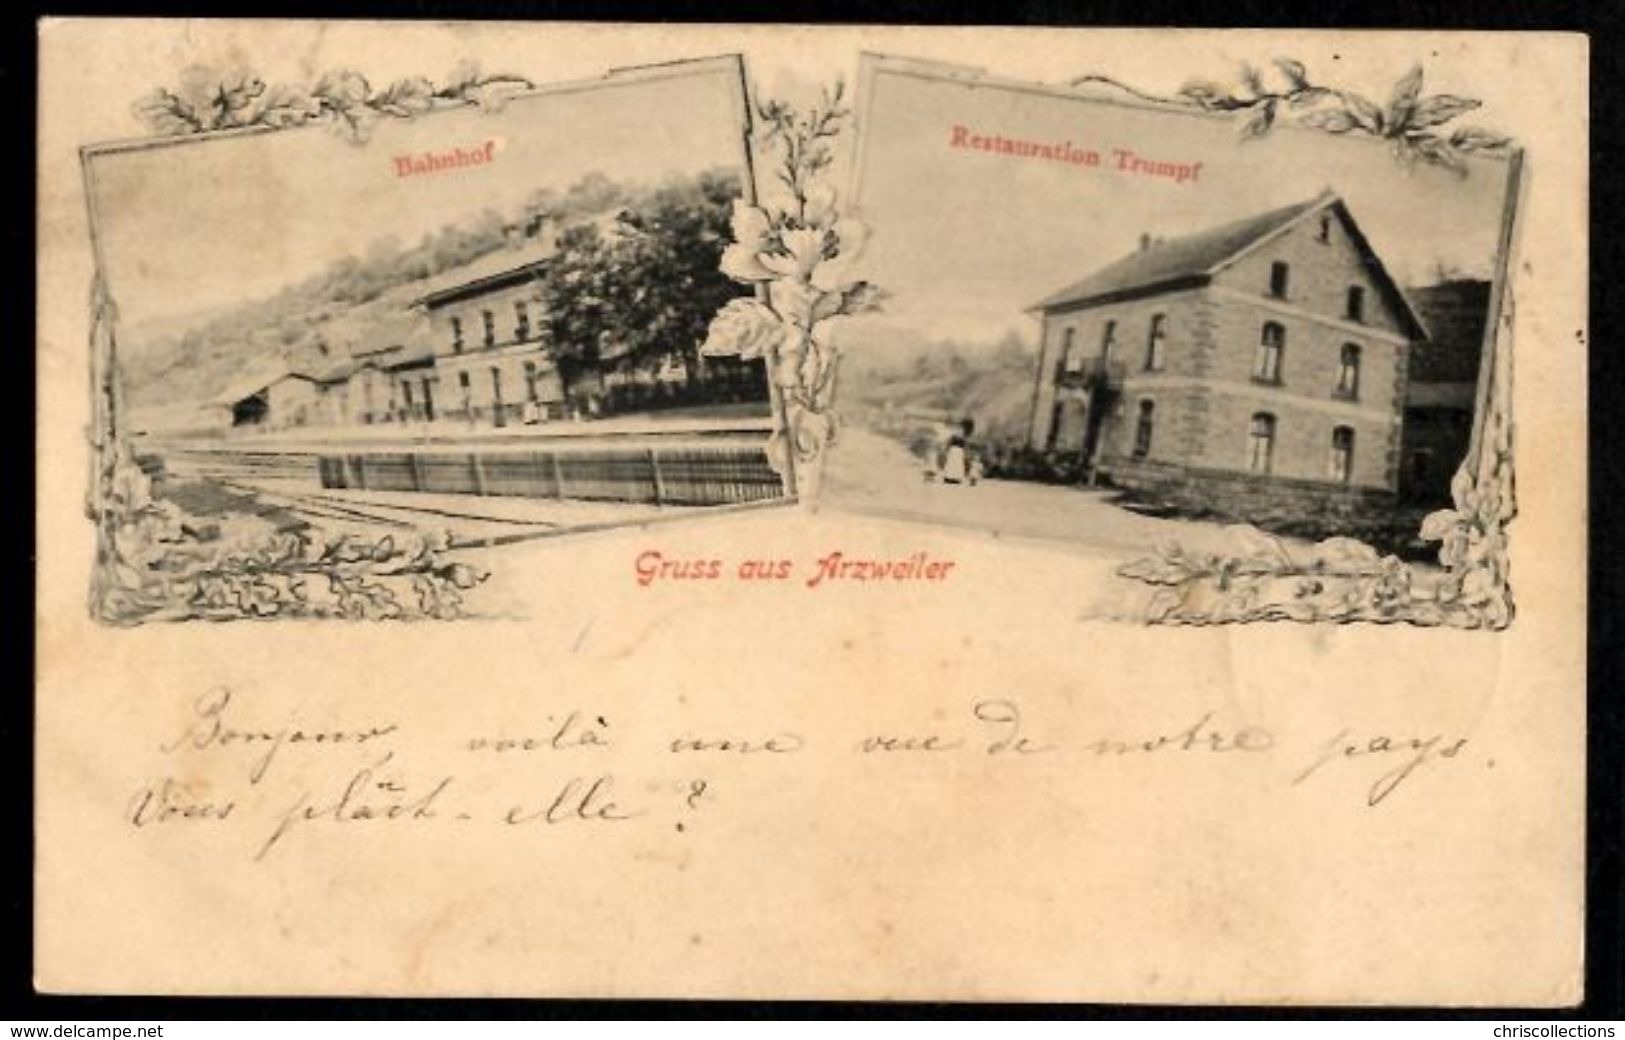 Bahnhof
Restauration Trumpf
Gruss aus Arzweiler
Bonjour, voilà une vue de notre pays.
Vous pläit-elle ?
www.delcampe.net
chriscollections